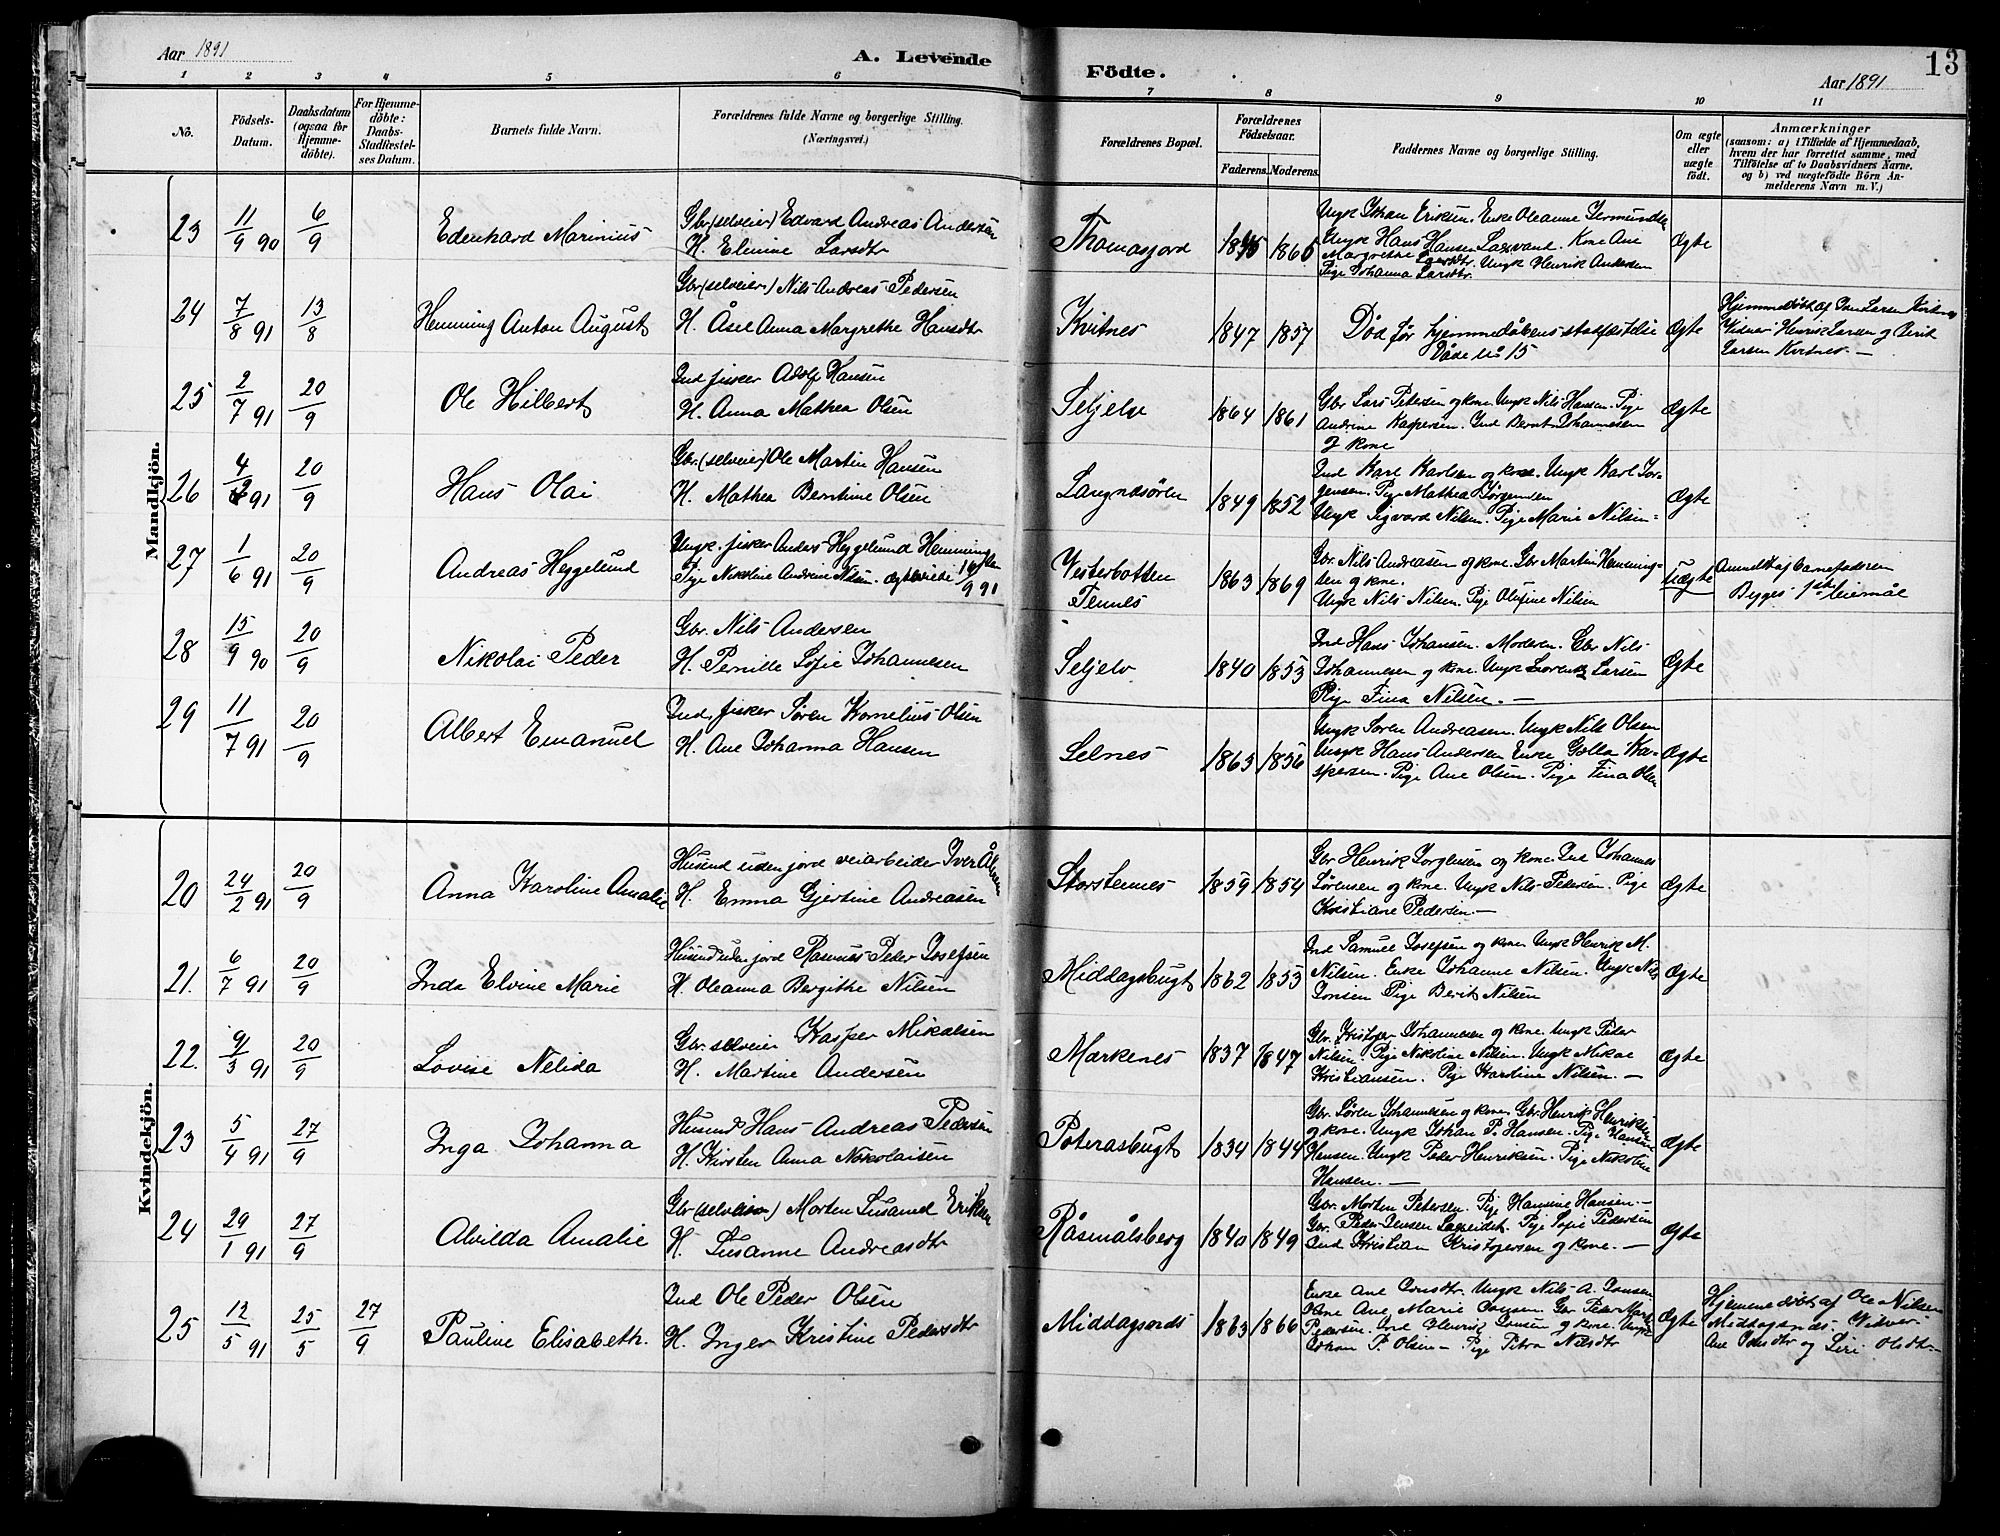 Aar 1891
A. Levende
Födte.
Aar 1891
13
1 2 3 4 5 6 7 8 9 10 11
No.
Födsels-
Datum.
Daabsdatum
(ogsaa for
Hjemme-
döbte).
For Hjemme-
döbte:
Daabs-
Stadfæstel-
ses Datum.
Barnets fulde Navn.
Forældrenes fulde Navne og borgerlige Stilling.
(Næringsvei.)
Forældrenes Bopæl.
Forældrenes
Födselsaar.
Faderens. Moderens.
Faddernes Navne og borgerlige Stilling.
Om ægte
eller
uægte
født.
Anmærkninger
(saasom: a) i Tilfælde af Hjemmedaab,
hvem der har forrettet samme, med
Tilföielse af to Daabsvidners Navne,
og b) ved uægtefödte Börn An-
melderens Navn m. V.)
Mandkjön.
23 11/9 90 6/9 Edenhard Marinius
Gbr (selveier) Edvard Andreas Andersen
H. Elenine Larsdtr
Thomasjord 1865 Ægte
Ungk Johan Eriksen. Enke Oleanne
Ungk Hans Hansen Laxvand. Kone Ane
Margrethe Larsdtr. Ungk Henrik Andersen
Pige Johanna Larsdtr.
24 7/8 91 13/8 Henning Anton August
Gbr (selveier) Nils Andreas Pedersen
H. Åsel Anna Margrethe Hansdtr
Kvitnes 1847 1857
Død før hjemmedåbens stadfæstelse
Døde No 15
Ægte
Hjemmedöbt af Larsen
Vidner Henrik Larsen og Berit
Larsen Kvitnes. —
25 2/7 91 20/9 Ole Hilbert
Ind fisker Adolf Hansen
H. Anna Mathea Olsen
Seljelv 1864 1861
Gbr Lars Petersen og kone. Ungk Nils Hansen. Pige
Andrine Kaspersen. Ind Bernt Johannesen
og kone
Ægte
26 4/2 91 20/9 Hans Olai
Gbr. (selveier) Ole Martin Hansen
H. Mathea Berntine Olsen
Langnesören 1849 1852
Ind Karl Karlsen og kone. Ungk Karl Jör-
gensen. Pige Mathea Jörgensen
Ungk Sigvard Nilsen. Pige Marie Nilsen -
Ægte
27 1/6 91 20/9 Andreas Heggelund
Ungk. fisker Anders Heggelund Henningsen
Pige Nikoline Andrine Nilsen.
Vesterbotten
Tennes
1863 1869
Gbr. Nils Andreasen og kone. Gbr Martin Henning-
sen og kone.
Ungk Nils Nilsen. Pige Olufine Nilsen
Uægte
Anmeldt af barnefaderen
Begges 1ste leiermål
28 15/9 90 20/9 Nikolai Peder
Gbr. Nils Andersen
H. Pernille Sofie Johannesen
Seljelv 1840 1853
Ind Hans Johansen. Moderen. Gbr Nils
Johannesen og kone. Ungk Lorentz Larsen
Pige Fina Nilsen. —
Ægte
29 11/7 91 20/9 Albert Emanuel
Ind. fisker Sören Kornelius Olsen
H. Ane Johanna Hansen
Selnes 1863 1856
Ungk Sören Andreasen. Ungk Nils Olsen
Ungk Hans Andersen Enke Golla Ka-
spersen. Pige Ane Olsen. Pige Fina Olsen
Ægte
Kvindekjön.
20 24/2 91 20/9 Anna Karoline Amalie
Husmd uden jord veiarbeider Iver Ålsen
H. Emma Gjertine Andreasen
Storstennes 1859 1854
Gbr Henrik Jörgensen og kone. Ind Johannes
Sörensen og kone. Ungk Nils Pedersen. Pige
Kristiane Pedersen. —
Ægte
21. 6/7 91 20/9 Inda Elvine Marie
Husmd uden jord Rasmus Peder Josefsen
H. Oleanna Bergithe Nilsen
Middagsbugt 1862 1853
Ind Samuel Josefsen og kone. Ungk Henrik M.
Nilsen. Enke Johanne Nilsen. Ungk Nils
Jonsen Pige Berit Nilsen
Ægte
22. 9/3 91 20/9 Lovise Nelida
Gbr. selveier Kasper Mikalsen
H. Martine Andersen
Markenes 1837 1847
Gbr. Kristofer Johannesen og kone. Ungk Peder
Nilsen. Pige Nikoline Nilsen. Ungk Mikal
Kristiansen. Pige Karoline Nilsen. —
Ægte
23 5/4 91 27/9 Inga Johanna
Husmd Hans Andreas Pedersen
H. Kirsten Anna Nikolaisen
Poterasbugt 1834 1844
Gbr. Sören Johannesen og kone. Gbr. Henrik Henriksen
og kone. Ungk Johan P. Hansen. Pige Hansine
Hansen. Ungk Peder Henriksen. Pige Nikoline
Hansen. —
Ægte
24 29/1 91 27/9 Alvilda Amalie
Gbr (selveier) Morten Susand Eriksen
H. Susanne Andreasdtr
Råsmålsberg 1840 1849
Gbr. Morten Petersen. Pige Hannine Hansen. —
Gbr. Peder Jensen Laxeidet. Pige Sofie Pedersen
Ind Kristian Kristofersen og kone. —
Ægte
25 12/5 91 25/5 27/9 Pauline Elisabeth.
Ind Ole Peder Olsen
H. Inger Kristine Pedersdtr
Middagsnds 1863 1866
Enke Ane Jonsdtr. Ungk Nils A. Jonsen
Ane Marie Jonsen. Gbr Peder
Pedersen. Henrik Jonsen og kone. Ungk
Johan P. Olsen — Pige Petra Nilsdtr
Ægte
Hjemmedöbt af Ole Nilsen
Middagsnds. Vidner:
Ane Jonsdtr og Siri Olsdtr —